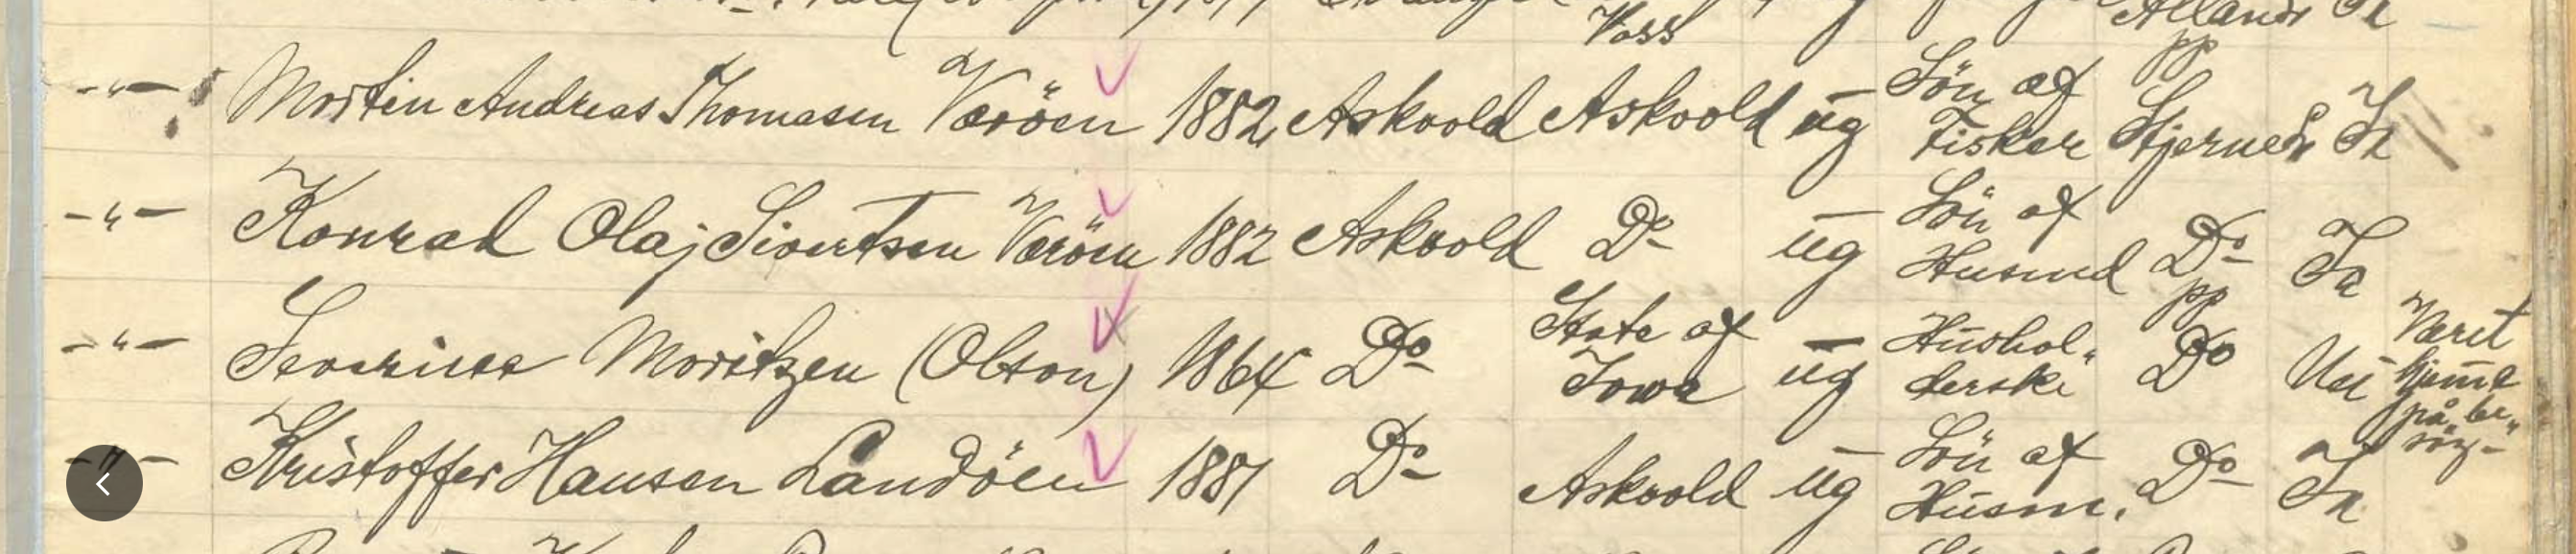 Voss
Allands Ja
pp
-"- Mortin Andreas Thomasen Væröen 1882 Askvold Askvold ug Sön af Fisker Stjerneds Ja
-"- Konrad Olaj Sivertsen Væröen 1882 Askvold Do ug Sön af Husmd Do Ja
pp
-"- Severine Moritzen (Olson) 1864 Do State af Iowa ug Hushol„ derske Do Nei Været hjeme på be„ søg-
-"- Kristoffer Hansen Landöen 1881 Do Askvold ug Sön af Husm. Do Ja